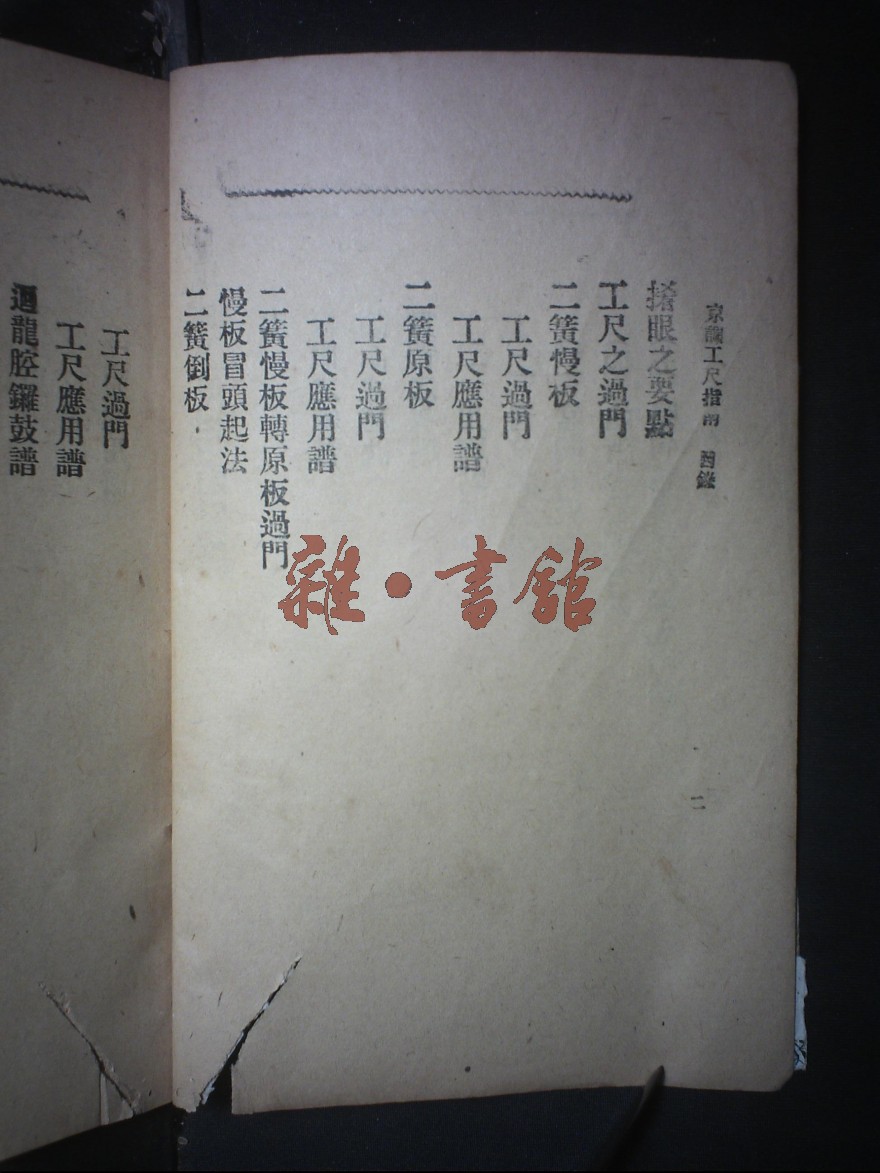 京調工尺指南 目錄
搭眼之要點
工尺之過門
二簧慢板
工尺過門
工尺應用譜
二簧原板
工尺過門
工尺應用譜
二簧慢板轉原板過門
慢板冒頭起法
二簧倒板
二
工尺過門
工尺應用譜
迴龍腔鑼鼓譜
雜・書館